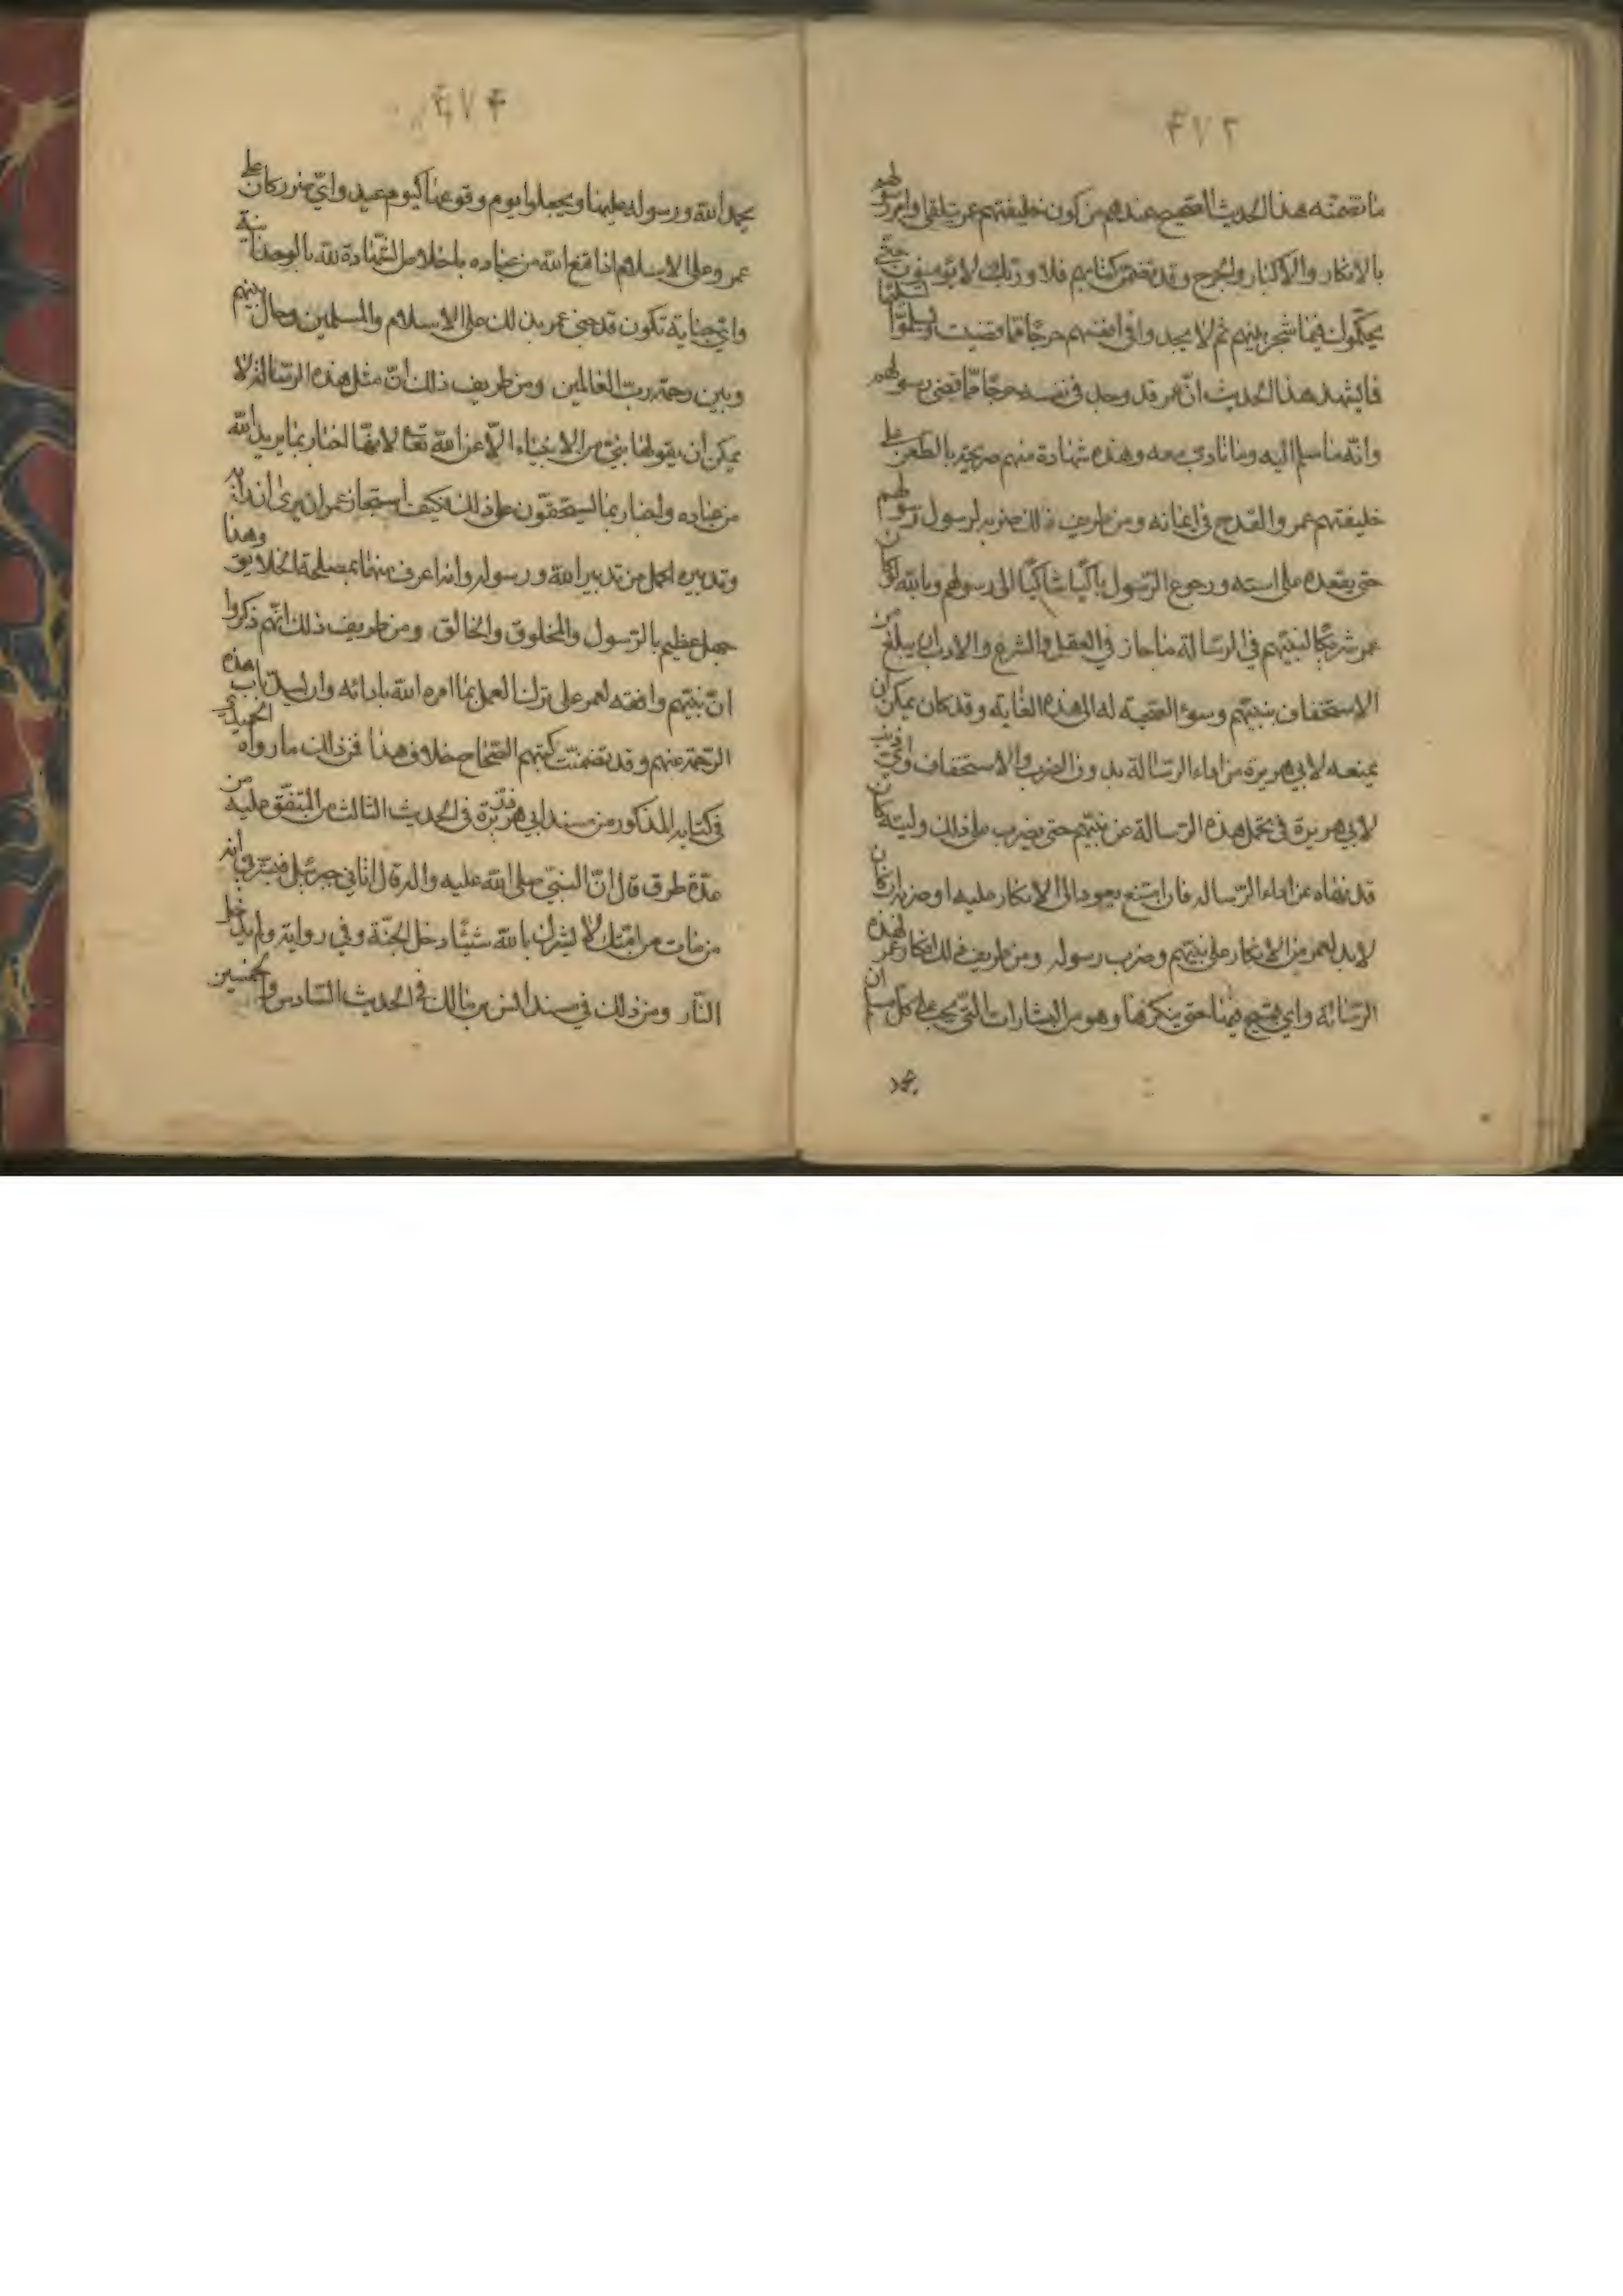 ٤٧٢
ما تضمنه هذا الحديث الصحيح عندهم من كون خليفتهم عمر تلقى أوامر رسولهم
بالانكار والاكبار والجرح وقد تضمن كتابهم فلا وربك لا يؤمنون حتى
يحكموك فيما شجر بينهم ثم لا يجدوا في انفسهم حرجا مما قضيت ويسلموا تسليما
فليشهد هذا الحديث انّ عمر قد وجد في نفسه حرجًا ممّا قضى رسولهم
وانّه ما سلم اليه وما تادب معه وهذه شهادة منهم صريحة بالطعن على
خليفتهم عمر والقدح في ايمانه ومن طريف ذلك ضربه لرسول رسولهم
حتى يقعده على استه ورجوع الرّسول باكيًا شاكيًا الى رسولهم وبالله لو كان
عمر شريكًا لنبيّهم في الرسالة ما جاز في العقل والشرع والادب ان يبلغ من
الاستخفاف بنبيّهم وسوء الصحبة له الى هذه الغاية وقد كان يمكن ان
يمنعه لابي هريرة من اداء الرسالة بدون الضرب والاستخفاف واي ذنب
لابي هريرة في تحمل هذه الرسالة عن نبيّهم حتى يضرب على ذلك وليته كان
قد نهاه عن اداء الرّسالة فان امتنع يعود الى الانكار عليه او ضربه ان كان
لابد لعمر من الانكار على نبيّهم وضرب رسوله ومن طريف ذلك انكار عمر لهذه
الرّسالة واي قبيح فيها حتى ينكرها وهو من البشارات التي يجب على كل مسلم ان
يحمد
٤٧٣
يحمد الله ورسوله عليها ويجعلوا يوم وقوعها كيوم عيد وايّ ضرر كان على
عمر وعلى الاسلام اذا قنع الله من عباده باخلاص الشّهادة لله بالوحدانية
وايّ جناية تكون قد جنى عمر بذلك على الاسلام والمسلمين وحال بينهم
وبين رحمة ربّ العالمين ومن طريف ذلك انّ مثل هذه الرّسالة لا
يمكن ان يقولها نبيّ من الانبياء الّا عن الله تعالى لانّها اخبار بما يريد الله
من عباده واخبار بما يستحقّون على ذلك فكيف استجاز عمر ان يرى ان رأيه
وتدبيره اكمل من تدبير الله ورسوله وانه اعرف منهما بمصلحة الخلايق وهذا
جهل عظيم بالرّسول والمخلوق والخالق ومن طريف ذلك انّهم ذكروا
انّ نبيّهم وافقه لعمر على ترك العمل بما امره الله بادائه وان يسدّ باب هذه
الرّحمة عنهم وقد تضمنت كتبهم الصّحاح خلاف هذا فمن ذلك ما رواه الحميدي
في كتابه المذكور من مسند ابي ذر في الحديث الثالث من المتّفق عليه من
عدّة طرق قال انّ النبيّ صلى الله عليه واله قال اتاني جبرئيل فبشّرني انه
من مات من امّتك لا يشرك بالله شيئًا دخل الجنّة وفي رواية ولم يدخل
النّار ومن ذلك في مسند انس بن مالك في الحديث السّادس والخمسين